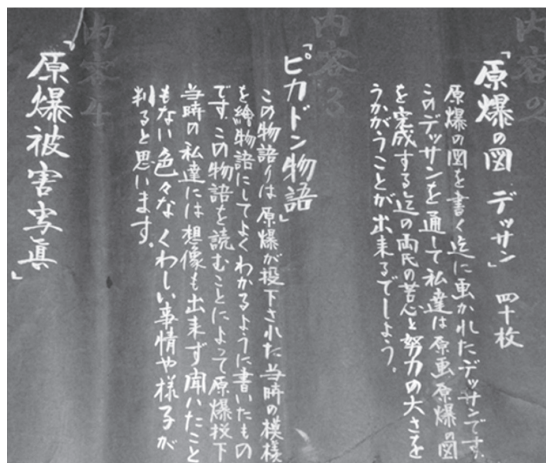 内容2
「原爆の図 デッサン」 四十枚
原爆の図を書く迄に画かれたデッサンです。
このデッサンを通して私達は原画原爆の図
を完成する迄の両氏の苦心と努力の大さを
うかがうことが出来るでしょう。
内容3
「ピカドン物語」
この物語りは原爆が投下された当時の模様
を繪物語にしてよくわかるように書いたもの
です。この物語を読むことによって原爆投下
当時の私達には想像も出来ず聞いたこと
もない色々なくわしい事情や様子が
判ると思います。
内容4
「原爆被害写真」